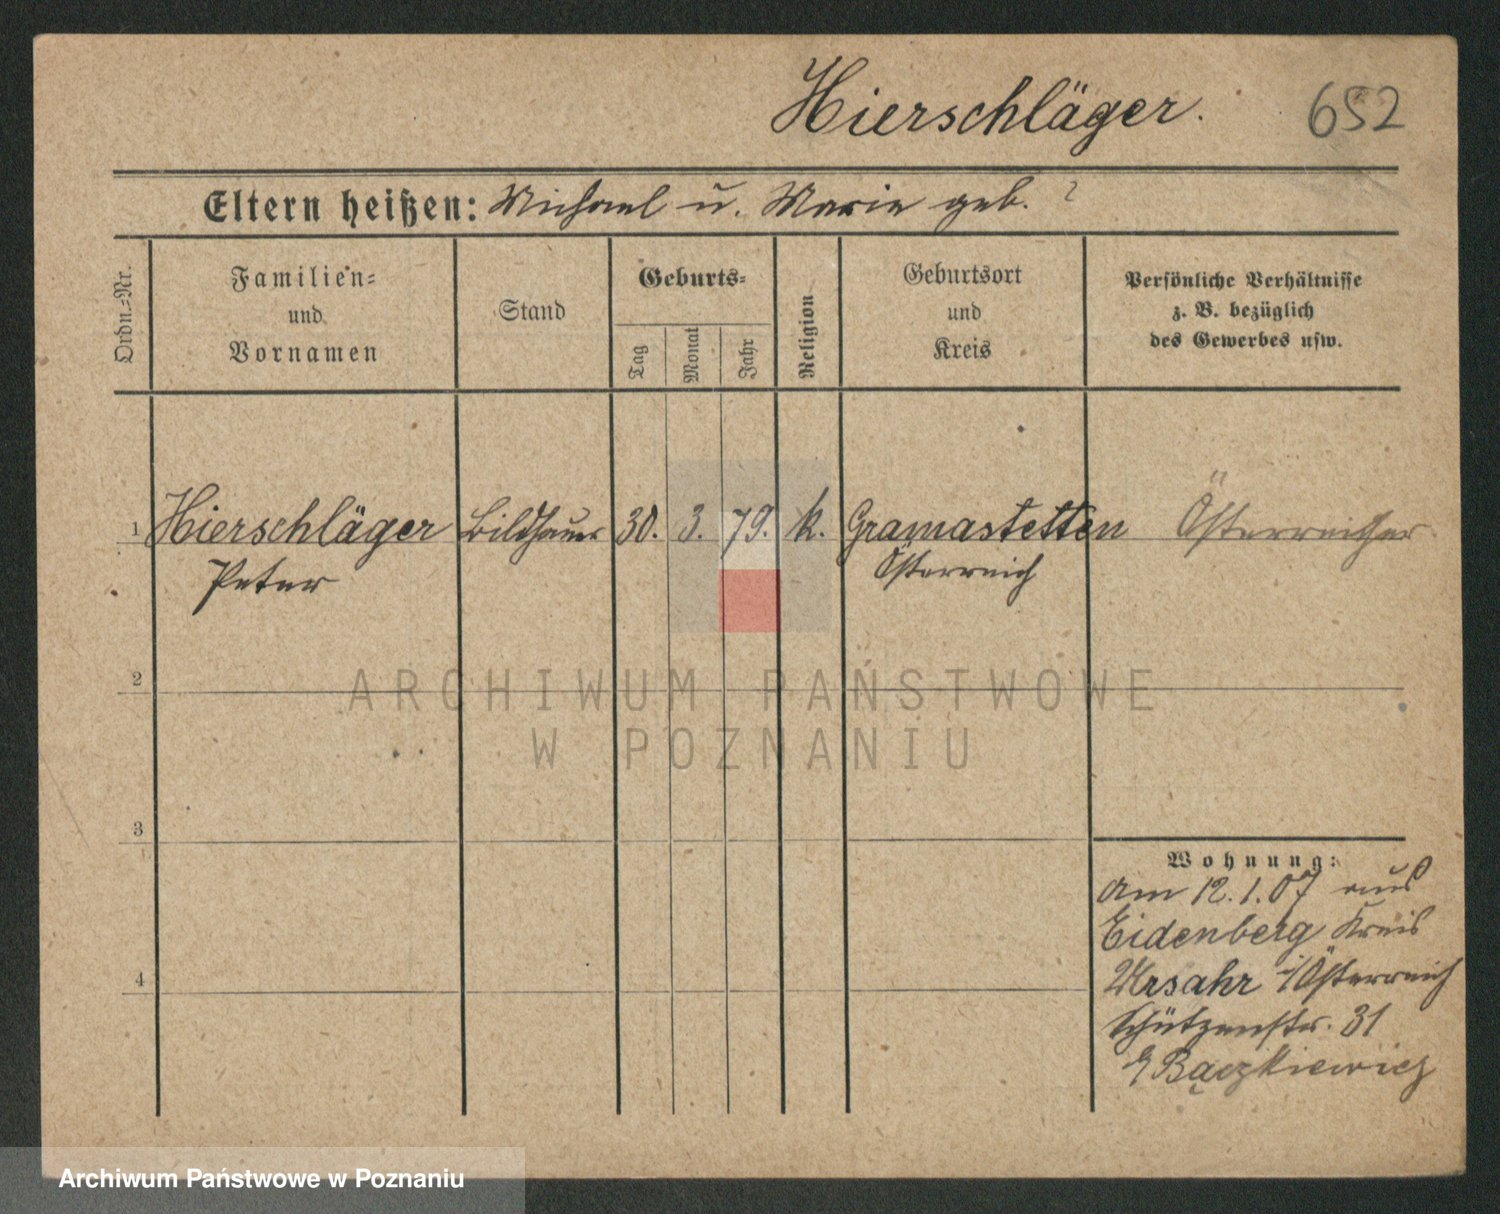 Hierschläger.
652
Eltern heißen: Michael u. Marie geb. ?
Ordn.=Nr.
Familien=
und
Vornamen
Stand
Geburts=
Tag
Monat
Jahr
Religion
Geburtsort
und
Kreis
Persönliche Verhältnisse
z. B. bezüglich
des Gewerbes usw.
1 Hierschläger Bildhauer 30. 3. 79. k. Gramastetten Österreicher
Peter Österreich
2
3
4
Wohnung:
am 12.1.07 aus
Eidenberg Kreis
Ursahr i/Österreich
Schützenstr. 31
Bączkiewicz
ARCHIWUM PAŃSTWOWE
W POZNANIU
Archiwum Państwowe w Poznaniu